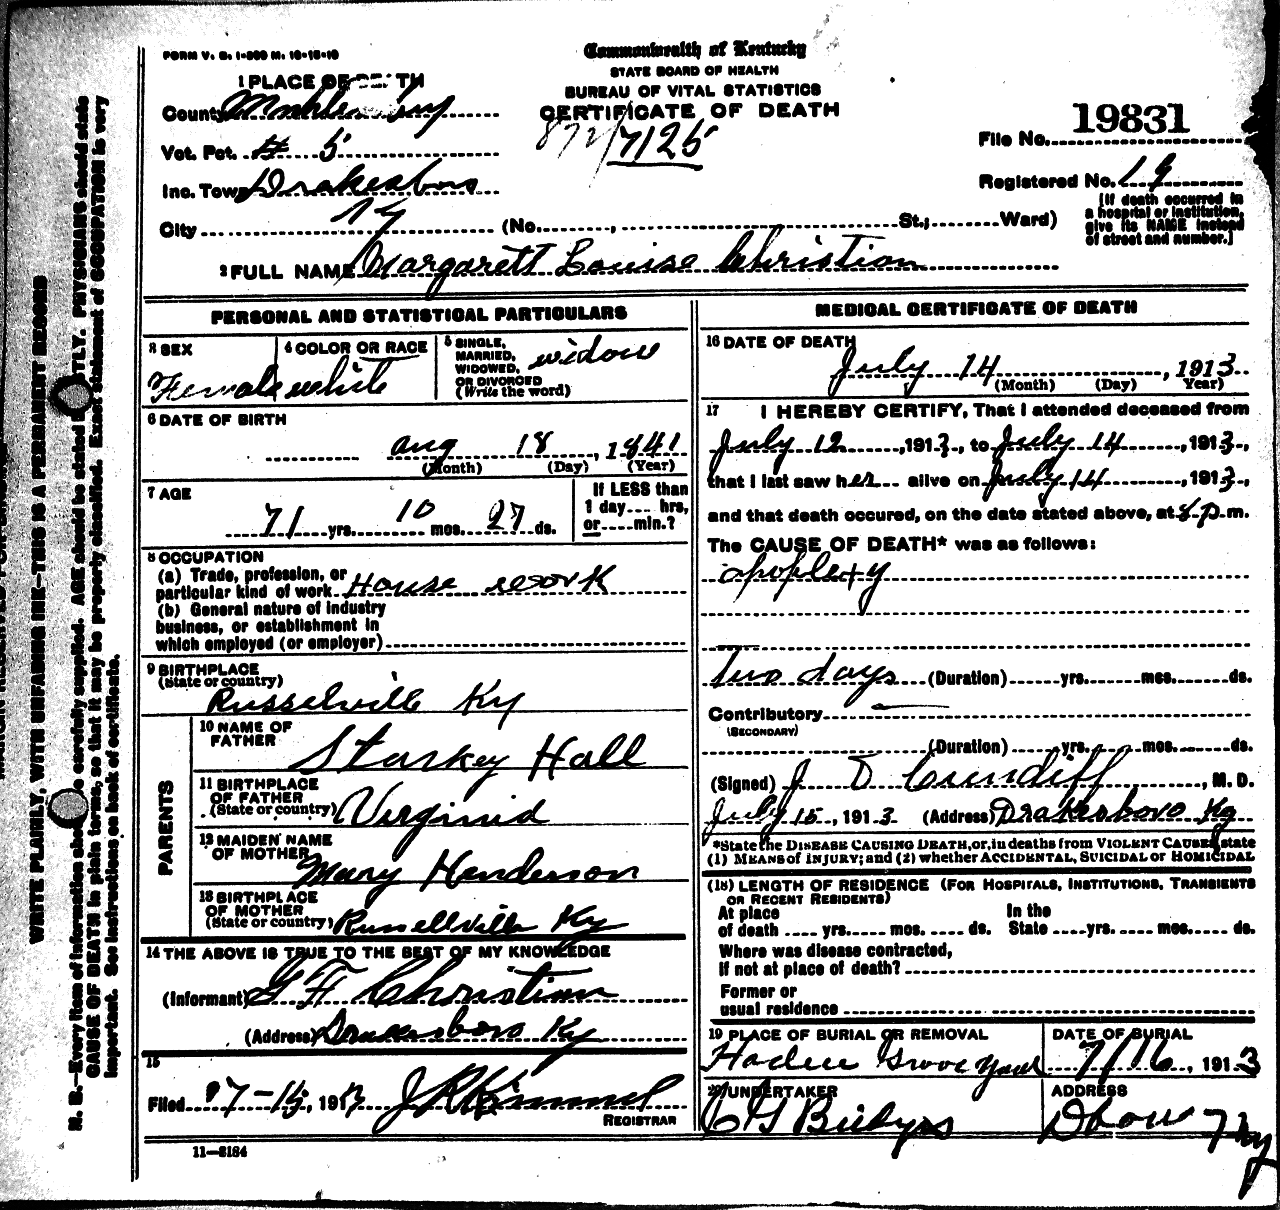 FORM V. S. 1-300 M. 10-15-10
Commonwealth of Kentucky
STATE BOARD OF HEALTH
BUREAU OF VITAL STATISTICS
CERTIFICATE OF DEATH
7125
1 PLACE OF DEATH
County Muhlenburg
Vot. Pct. # 5
Inc. Town Drakesboro
City Ky (No. , St.; Ward)
File No. 19831
Registered No. 19
[If death occurred in
a hospital or institution,
give its NAME instead
of street and number.]
2 FULL NAME Margarett Louise Christian
PERSONAL AND STATISTICAL PARTICULARS
3 SEX
Female
4 COLOR OR RACE
white
5 SINGLE,
MARRIED,
WIDOWED,
OR DIVORCED
(Write the word)
widow
6 DATE OF BIRTH
Aug 18, 1841
(Month) (Day) (Year)
7 AGE
71 yrs. 10 mos. 27 ds.
If LESS than
1 day hrs,
or min.?
8 OCCUPATION
(a) Trade, profession, or
particular kind of work House work
(b) General nature of industry
business, or establishment in
which employed (or employer)
9 BIRTHPLACE
(State or country)
Russelville Ky
PARENTS
10 NAME OF
FATHER
Starkey Hall
11 BIRTHPLACE
OF FATHER
(State or country) Virginia
12 MAIDEN NAME
OF MOTHER
Mary Henderson
13 BIRTHPLACE
OF MOTHER
(State or country) Russellville Ky
14 THE ABOVE IS TRUE TO THE BEST OF MY KNOWLEDGE
(Informant) G F Christian
(Address) Drakesboro Ky
15
Filed 7-15, 1913 J R Kimmel
REGISTRAR
11-3184
MEDICAL CERTIFICATE OF DEATH
16 DATE OF DEATH
July 14, 1913
(Month) (Day) (Year)
17 I HEREBY CERTIFY, That I attended deceased from
July 12, 1913, to July 14, 1913,
that I last saw her alive on July 14, 1913,
and that death occured, on the date stated above, at p.m.
The CAUSE OF DEATH* was as follows:
apoplexy
Two days (Duration) yrs. mos. ds.
Contributory
(SECONDARY)
(Duration) yrs. mos. ds.
(Signed) J D Cundiff, M. D.
July 15, 1913 (Address) Drakesboro Ky
*State the DISEASE CAUSING DEATH, or, in deaths from VIOLENT CAUSES, state
(1) MEANS of INJURY; and (2) whether ACCIDENTAL, SUICIDAL or HOMICIDAL
(18) LENGTH OF RESIDENCE (FOR HOSPITALS, INSTITUTIONS, TRANSIENTS
OR RECENT RESIDENTS)
At place In the
of death yrs. mos. ds. State yrs. mos. ds.
Where was disease contracted,
If not at place of death?
Former or
usual residence
19 PLACE OF BURIAL OR REMOVAL
Grove yard
DATE OF BURIAL
7/16, 1913
20 UNDERTAKER
ADDRESS
Ky
WRITE PLAINLY, WITH UNFADING INK—THIS IS A PERMANENT RECORD
N. B.—Every item of information should be carefully supplied. AGE should be stated EXACTLY. PHYSICIANS should state
CAUSE OF DEATH in plain terms, so that it may be properly classified. Exact statement of OCCUPATION is very
important. See instructions on back of certificate.